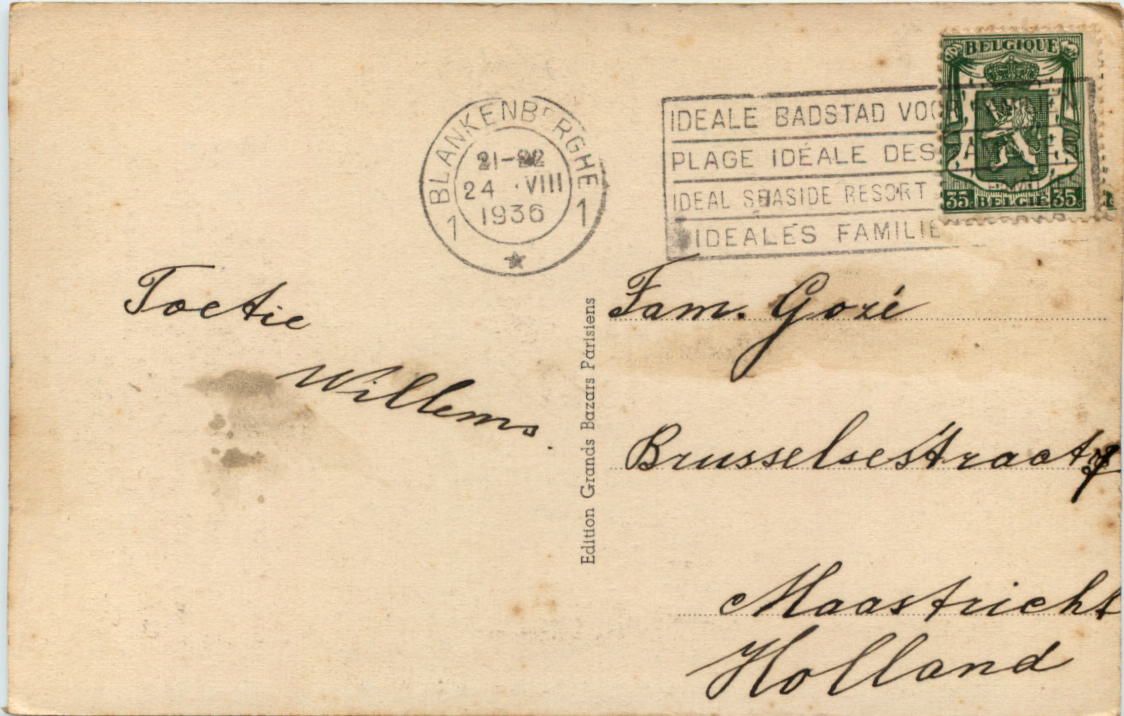 BELGIQUE
35 BELGIË 35
1 BLANKENBERGHE 1
21-22
24 VIII
1936
IDEALE BADSTAD VOOR
PLAGE IDÉALE DES
IDEAL SEASIDE RESORT
IDEALES FAMILIE
Toetie
Willems.
Edition Grands Bazars Parisiens
Fam. Gozé
Brusselsestraat
Maastricht
Holland